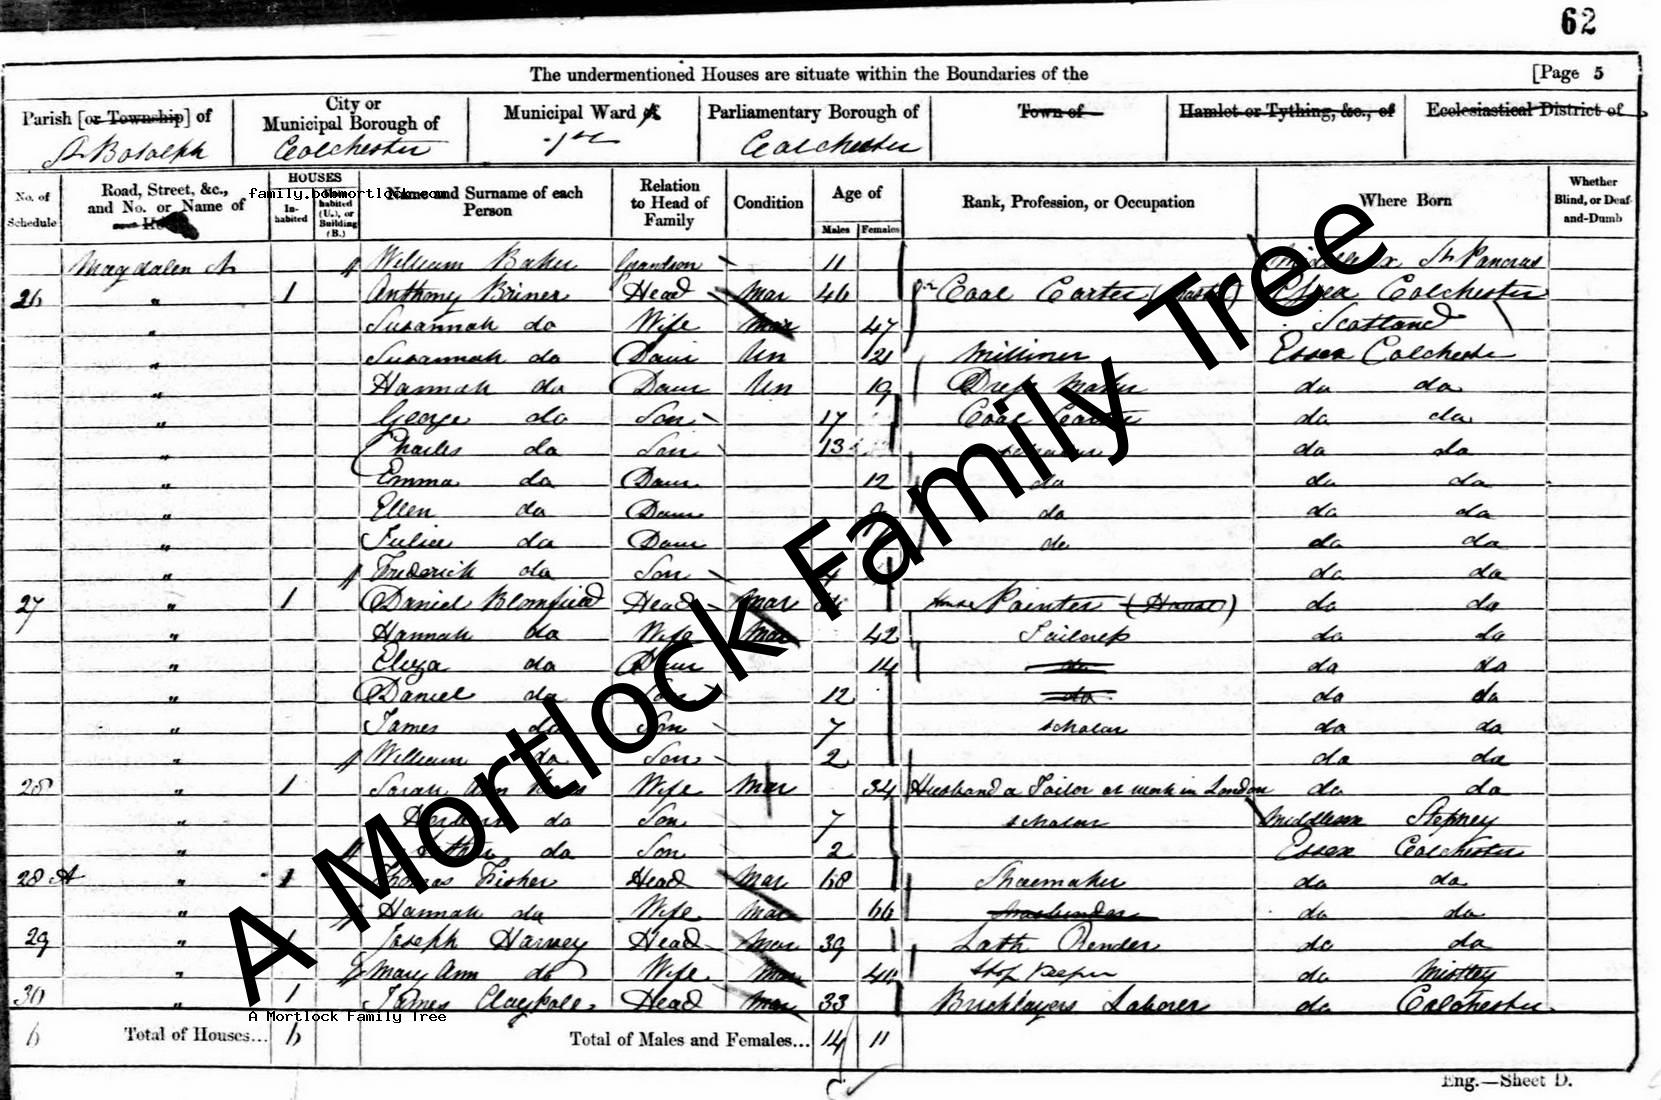 62
The undermentioned Houses are situate within the Boundaries of the [Page 5
Parish [or Township] of City or Municipal Borough of Municipal Ward of Parliamentary Borough of Town of Hamlet or Tything, &c., of Ecclesiastical District of
St Botolph Colchester Colchester
No. of Schedule Road, Street, &c., and No. or Name of HOUSES Inhabited Uninhabited (U.), or Building (B.) Name and Surname of each Person Relation to Head of Family Condition Age of Males Females Rank, Profession, or Occupation Where Born Whether Blind, or Deaf-and-Dumb
family.bobmortlock.com
Magdalen St William Baker Grandson 11 Middlesex St Pancras
26 " 1 Anthony Head Mar 46 Coal Carter (Master) Essex Colchester
" Susannah do Wife Mar 47 Scotland
" Susannah do Daur Un 21 Milliner Essex Colchester
" Hannah do Daur Un 19 Dress Maker do do
" George do Son 17 Coal Carter do do
" Charles do Son 13 Scholar do do
" Emma do Daur 12 do do do
" Ellen do Daur 9 do do do
" Julia do Daur do do do
" Frederick do Son 4 do do
27 " 1 Daniel Blomfield Head Mar House Painter (House) do do
" Hannah do Wife Mar 42 Tailoress do do
" Eliza do Daur 14 do do do
" Daniel do Son 12 do do do
" James do Son 7 Scholar do do
" William do Son 2 do do
28 " 1 Sarah Ann Wife Mar 34 Husband a Tailor at work in London do do
" do Son 7 Scholar Middlesex Stepney
" Arthur do Son 2 Essex Colchester
28 A " 1 Thomas Fisher Head Mar 68 Shoemaker do do
" Hannah do Wife Mar 66 Shoebinder do do
29 " 1 Joseph Harvey Head Mar 39 Lath Render do do
" Mary Ann do Wife Mar Shop Keeper do Mistley
30 " 1 James Claypole Head Mar 33 Bricklayers Laborer do Colchester
A Mortlock Family Tree
A Mortlock Family Tree
6 Total of Houses... 6 Total of Males and Females... 14 11
Eng.—Sheet D.